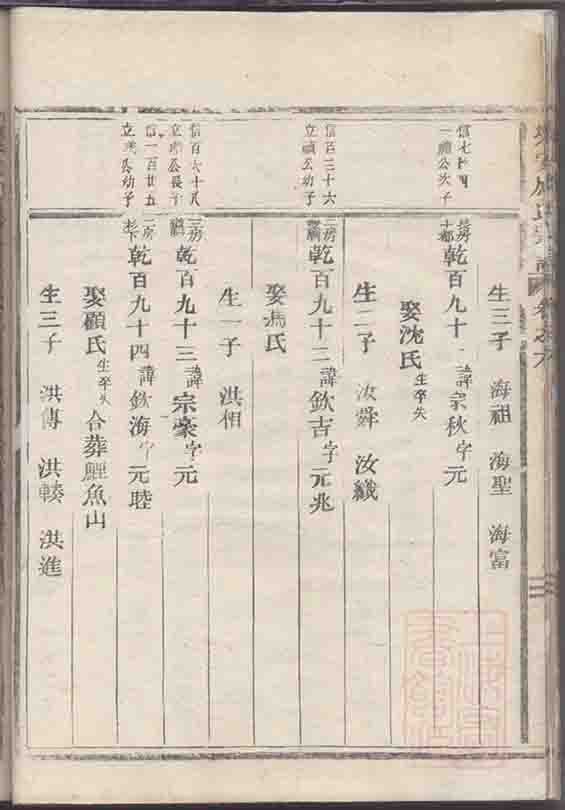 生三子 海祖 海聖 海富
信七十四
一禎公次子
乾百九十一 諱宗秋 字元
娶沈氏 生卒失
生二子 汝舜 汝織
信百三十六
立禎公幼子
二房
乾百九十二 諱欽吉 字元兆
娶馮氏
生一子 洪相
信百六十八
公長子
三房
乾百九十三 諱宗豪 字元
信一百廿五
公幼子
二房
乾百九十四 諱欽海 字元睦
娶顧氏 生卒失 合葬鯉魚山
生三子 洪傳 洪 洪進